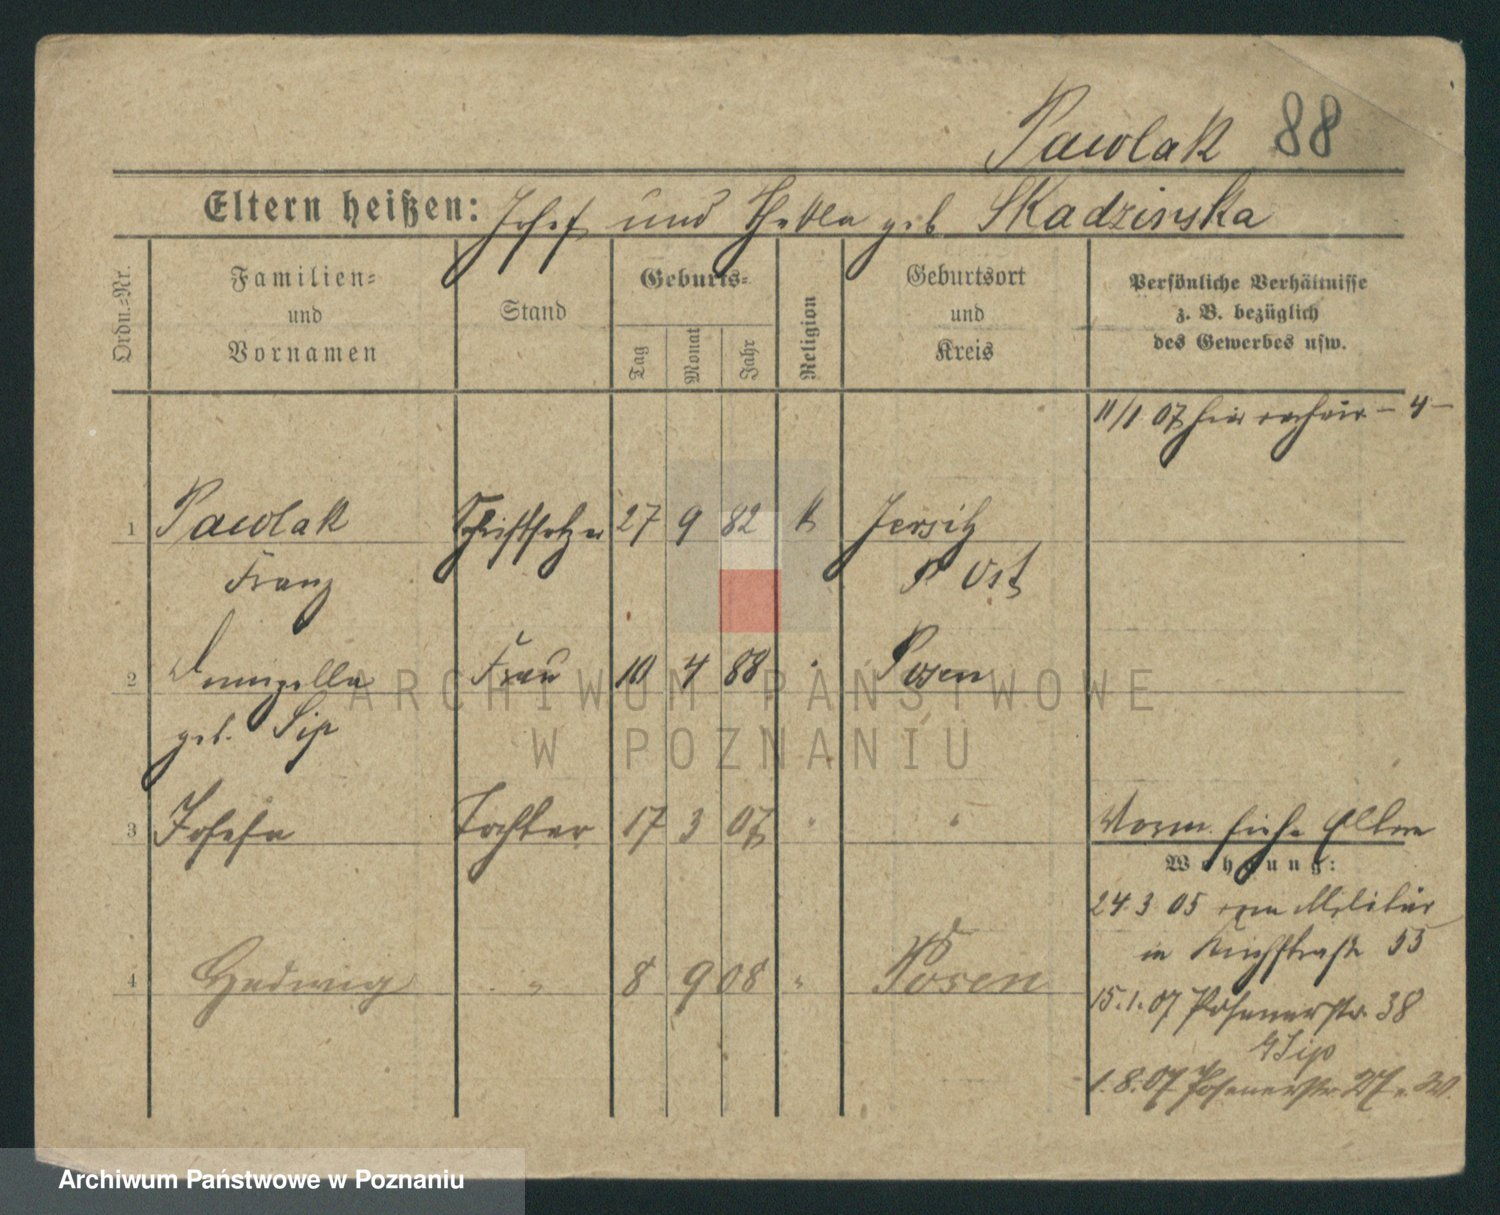 Pawlak 88
Eltern heißen: Josef und Thekla geb Skadzinska
Ordn.-Nr.
Familien- und Vornamen
Stand
Geburts-
Tag
Monat
Jahr
Religion
Geburtsort und Kreis
Persönliche Verhältnisse z. B. bezüglich des Gewerbes usw.
11/1 07 hier - 4 -
1 Pawlak Schriftsetzer 27 9 82 k Jersitz
Franz P Ost
2 Frau 10 4 88 " Posen
geb. Sip
3 Josefa Tochter 17 3 07 " "
Vorm. siehe Eltern
Wohnung:
24.3.05 vom Militär
in Kirchstraße 55
4 Hedwig " 8 9 08 " Posen
15.1.07 Posenerstr. 38
Sip
1.8.07 Posenerstr. 27
ARCHIWUM PAŃSTWOWE
W POZNANIU
Archiwum Państwowe w Poznaniu